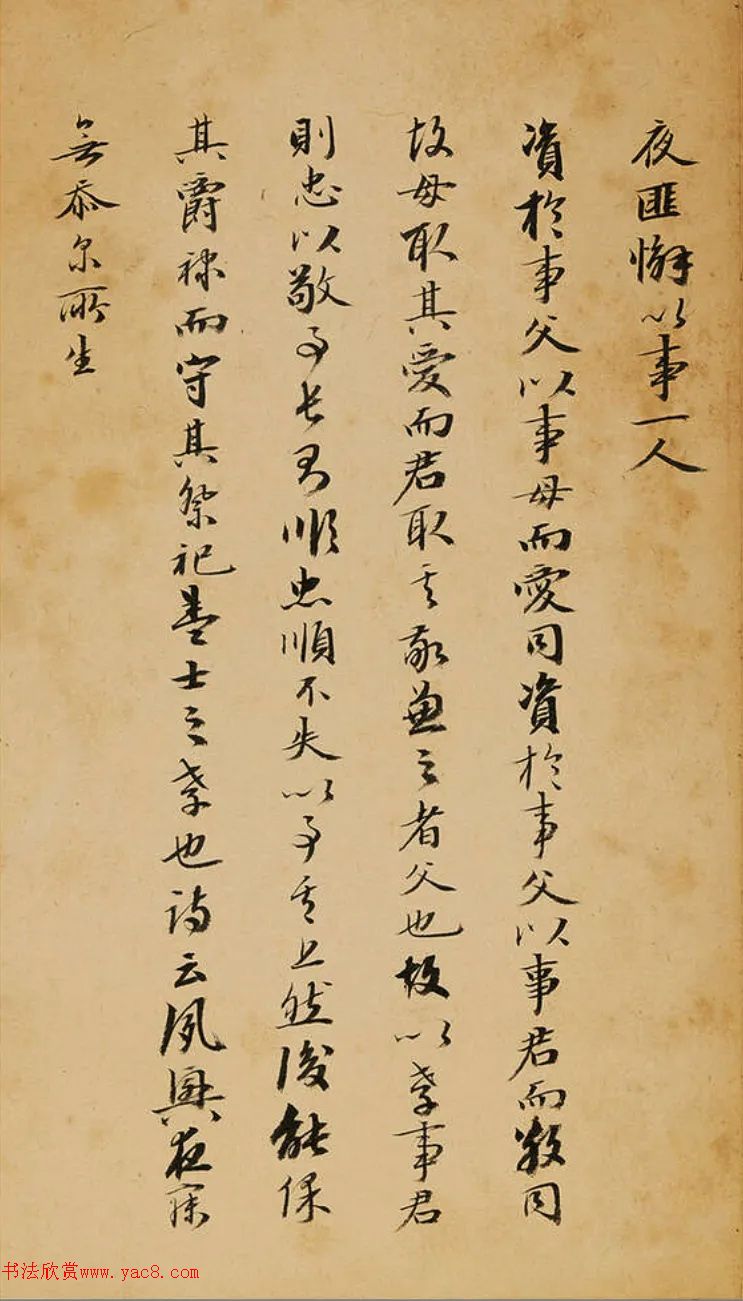 夜匪懈以事一人
資於事父以事母而愛同資於事父以事君而敬同
故母取其愛而君取其敬兼之者父也故以孝事君
則忠以敬事長則順忠順不失以事其上然後能保
其爵祿而守其祭祀蓋士之孝也詩云夙興夜寐
無忝尔所生
书法欣赏www.yac8.com